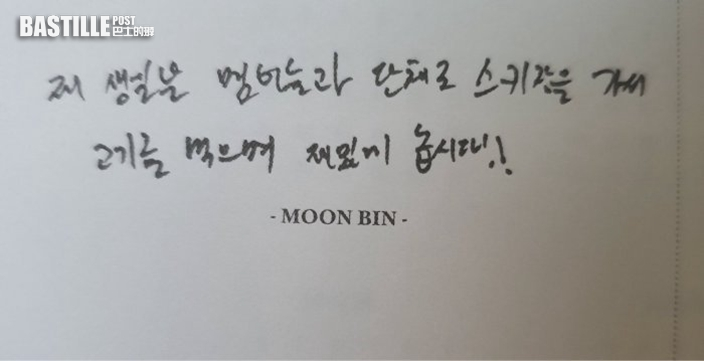 BASTILLE POST
巴士的報
제 생일은 멤버들과 단체로 스키장을 가서
고기를 먹으며 재밌게 놉시다!
- MOON BIN -